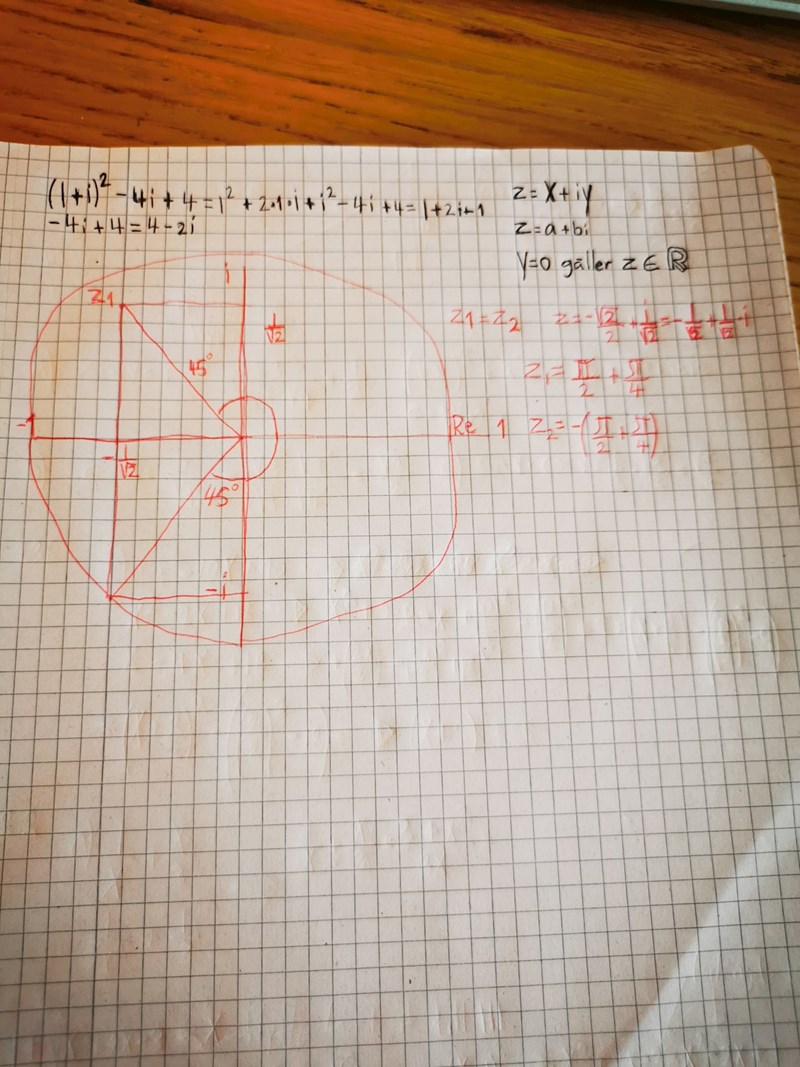 (1+i)² - 4i + 4 = 1² + 2·1·i + i² - 4i + 4 = 1 + 2i - 1
- 4i + 4 = 4 - 2i
z = x + iy
z = a + bi
y=0 gäller z ∈ ℝ
i
z1
1/√2
45°
-1
-1/√2
Re 1
45°
-i
z1 = z2 z = -√2/2 + i/√2 = -1/√2 + 1/√2·i
z1 = π/2 + π/4
z2 = -(π/2 + π/4)